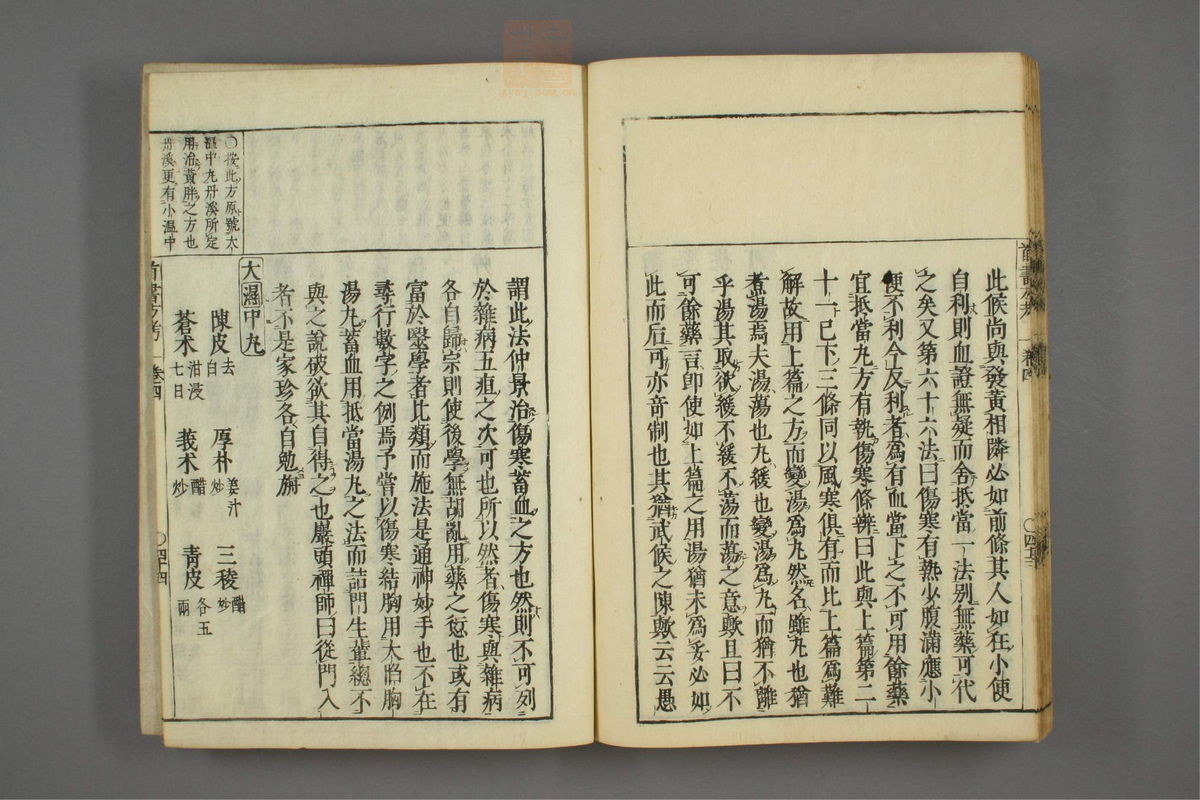 此候尚與發黃相隣必如前條其人如狂小便
自利則血證無疑而舍抵當一法別無藥可代
之矣又第六十六法曰傷寒有熱少腹滿應小
便不利今反利者爲有血當下之不可用餘藥
宜抵當丸方有執傷寒條辨曰此與上篇第二
十一巳下三條同以風寒俱有而比上篇爲難
解故用上篇之方而變湯爲丸然名雖丸也猶
煮湯焉夫湯蕩也丸緩也變湯爲丸而猶不離
乎湯其取欲緩不緩不蕩而蕩之意歟且曰不
可餘藥言即使如上篇之用湯猶未爲妥必如
此而后可亦奇制也其猶武候之陳歟云云愚
謂此法仲景治傷寒蓄血之方也然則不可列
於雜病五疸之次可也所以然者傷寒與雜病
各自歸宗則使後學無胡亂用藥之愆也或有
富於醫學者比類而施法是通神妙手也不在
尋行數字之例焉予嘗以傷寒結胸用大陷胸
湯丸蓄血用抵當湯丸之法而詰門生輩總不
與之說破欲其自得之也巖頭禪師曰從門入
者不是家珍各自勉旃
〇按此方原號大
溫中丸丹溪所定
用治黃胖之方也
丹溪更有小溫中
大溫中丸
陳皮 去白 厚朴 姜汁炒 三稜 醋炒
蒼朮 泔浸七日 莪朮 醋炒 靑皮 各五兩
卷四
〇四十四